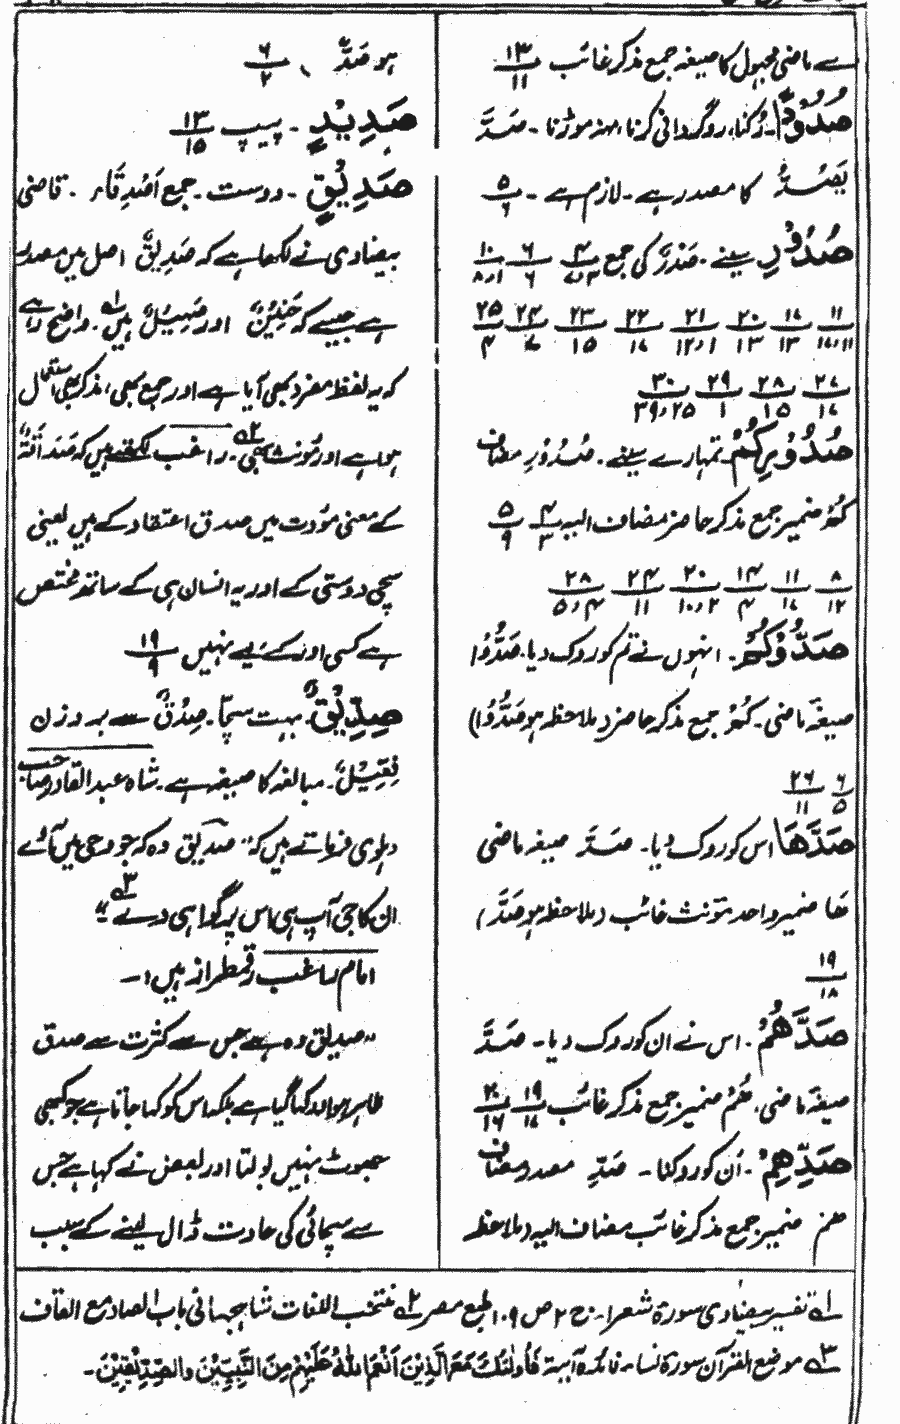 سے ماضی مجہول کا صیغہ جمع مذکر غائب ۱۳/۱۱
صُدُوْدًا۔ رُکنا، روگردانی کرنا، منہ موڑنا۔ صَدَّ
یَصُدُّ کا مصدر ہے۔ لازم ہے۔ ۵/۶
صُدُوْرِ سینے۔ صَدْرٌ کی جمع ۴/۷،۳ ۶/۶ ۱۰/۸،۱
۱۱/۱۷،۱۱ ۱۷/۱۳ ۲۰/۱۳ ۲۱/۱۲،۱ ۲۲/۱۷ ۲۳/۱۵ ۲۴/۷ ۲۵/۴
۲۷/۱۷ ۲۸/۱۵ ۲۹/۱ ۳۰/۳۹،۲۵
صُدُوْرِكُمْ۔ تمہارے سینے۔ صُدُوْرِ مضاف
كُمْ ضمیر جمع مذکر حاضر مضاف الیہ ۴/۳ ۵/۹
۸/۱۲ ۱۱/۱۷ ۱۴/۴ ۲۰/۱۰،۲ ۲۴/۱۱ ۲۸/۵،۴
صَدُّوْكُمْ۔ انہوں نے تم کو روک دیا۔ صَدُّوْا
صیغۂ ماضی۔ كُمْ جمع مذکر حاضر (ملاحظہ ہو صَدُّوْا)
۶/۵ ۲۶/۱۱
صَدَّهَا اس کو روک دیا۔ صَدَّ صیغہ ماضی
هَا ضمیر واحد مؤنث غائب (ملاحظہ ہو صَدَّ)
۱۹/۱۸
صَدَّهُمْ۔ اس نے ان کو روک دیا۔ صَدَّ
صیغۂ ماضی، هُمْ ضمیر جمع مذکر غائب ۱۹/۱۷ ۲۰/۱۶
صَدِّهِمْ۔ اُن کو روکنا۔ صَدِّ مصدر مضاف
هم ضمیر جمع مذکر غائب مضاف الیہ (ملاحظہ
ہو صَدٌّ) ۶/۲
صَدِيْدٍ۔ پیپ ۱۳/۱۵
صَدِيْقٍ۔ دوست۔ جمع اَصْدِقَاء۔ قاضی
بیضاوی نے لکھا ہے کہ صَدِیْقٌ اصل میں مصدر
ہے جیسے کہ حَنِیْنٌ اور صَهِیْلٌ ہیں۱ے۔ واضح رہے
کہ یہ لفظ مفرد بھی آیا ہے اور جمع بھی، مذکر بھی استعمال
ہوا ہے اور مؤنث بھی۲ے۔ راغب لکھتے ہیں کہ صَدَاقَةٌ
کے معنی مؤدت میں صدق اعتقاد کے ہیں یعنی
سچی دوستی کے اور یہ انسان ہی کے ساتھ مختص
ہے کسی اور کے لیے نہیں ۱۹/۹
صِدِّيْقٌ۔ بہت سچا۔ صِدْقٌ سے بر وزن
فِعِّیْلٌ۔ مبالغہ کا صیغہ ہے۔ شاہ عبدالقادر صاحب
دہلوی فرماتے ہیں کہ "صدیق وہ کہ جو وحی میں آئے
ان کا جی آپ ہی اس پر گواہی دے"۳ے
امام راغب رقمطراز ہیں:۔
"صدیق وہ ہے جس سے کثرت سے صدق
ظاہر ہو اور کہا گیا ہے بلکہ اس کو کہا جاتا ہے جو کبھی
جھوٹ نہیں بولتا اور بعض نے کہا ہے جس
سے سچائی کی عادت ڈال لینے کے سبب
۱ے تفسیر بیضاوی سورۃ شعراء۔ ج ۲ ص ۱۰۹ طبع مصر ۲ے منتخب اللغات شاہجہانی باب الصاد مع القاف
۳ے موضح القرآن سورۃ نساء فائدہ آیۃ فَاُولٰئِكَ مَعَ الَّذِيْنَ اَنْعَمَ اللّٰهُ عَلَيْهِمْ مِنَ النَّبِيِّيْنَ وَالصِّدِّيْقِيْنَ۔